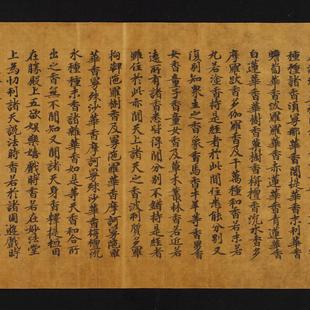 種種諸香須曼那華香闍提華香末利華香
瞻蔔華香波羅羅華香赤蓮華香青蓮華香
白蓮華香華樹香菓樹香栴檀香沉水香多
摩羅跋香多伽羅香及千萬種和香若末若
丸若塗香持是經者於此間住悉能分別又
復別知衆生之香象香馬香牛羊等香男香
女香童子香童女香及草木叢林香若近若
遠所有諸香悉皆得聞分別不錯持是經者
雖住於此亦聞天上諸天之香波利質多羅
拘鞞陀羅樹香及曼陀羅華香摩訶曼陀羅
華香曼殊沙華香摩訶曼殊沙華香栴檀沉
水種種末香諸雜華香如是等天香和合所
出之香無不聞知又聞諸天身香釋提桓因
在勝殿上五欲娛樂嬉戲時香若在妙法堂
上為忉利諸天說法時香若於諸園遊戲時